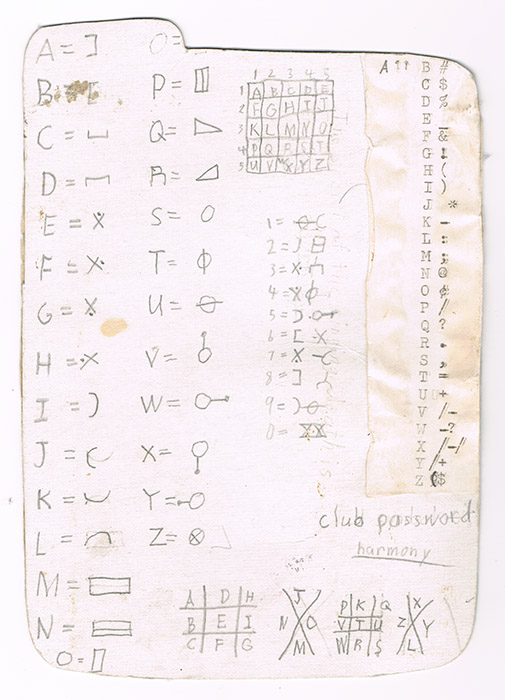 A = ]
B = [
C =
D =
E =
F =
G =
H =
I = )
J =
K =
L =
M =
N =
O =
O =
P =
Q =
R =
S = O
T = ϕ
U =
V =
W =
X =
Y =
Z = ⊗
1 2 3 4 5
1 A B C D E
2 F G H I J
3 K L M N O
4 P Q R S T
5 U V W X Y Z
1 =
2 =
3 =
4 =
5 =
6 =
7 =
8 =
9 =
0 =
A
B #
C $
D %
E _
F &
G !
H (
I )
J *
K -
L :
M ;
N @
O ¢
P //
Q ?
R .
S ,
T =
U +
V /-
W -?
X /-/
Y /+
Z ($
club password
harmony
A D H
B E I
C F G
J
N O
M
P K Q
V T U
W R S
X
Z Y
L